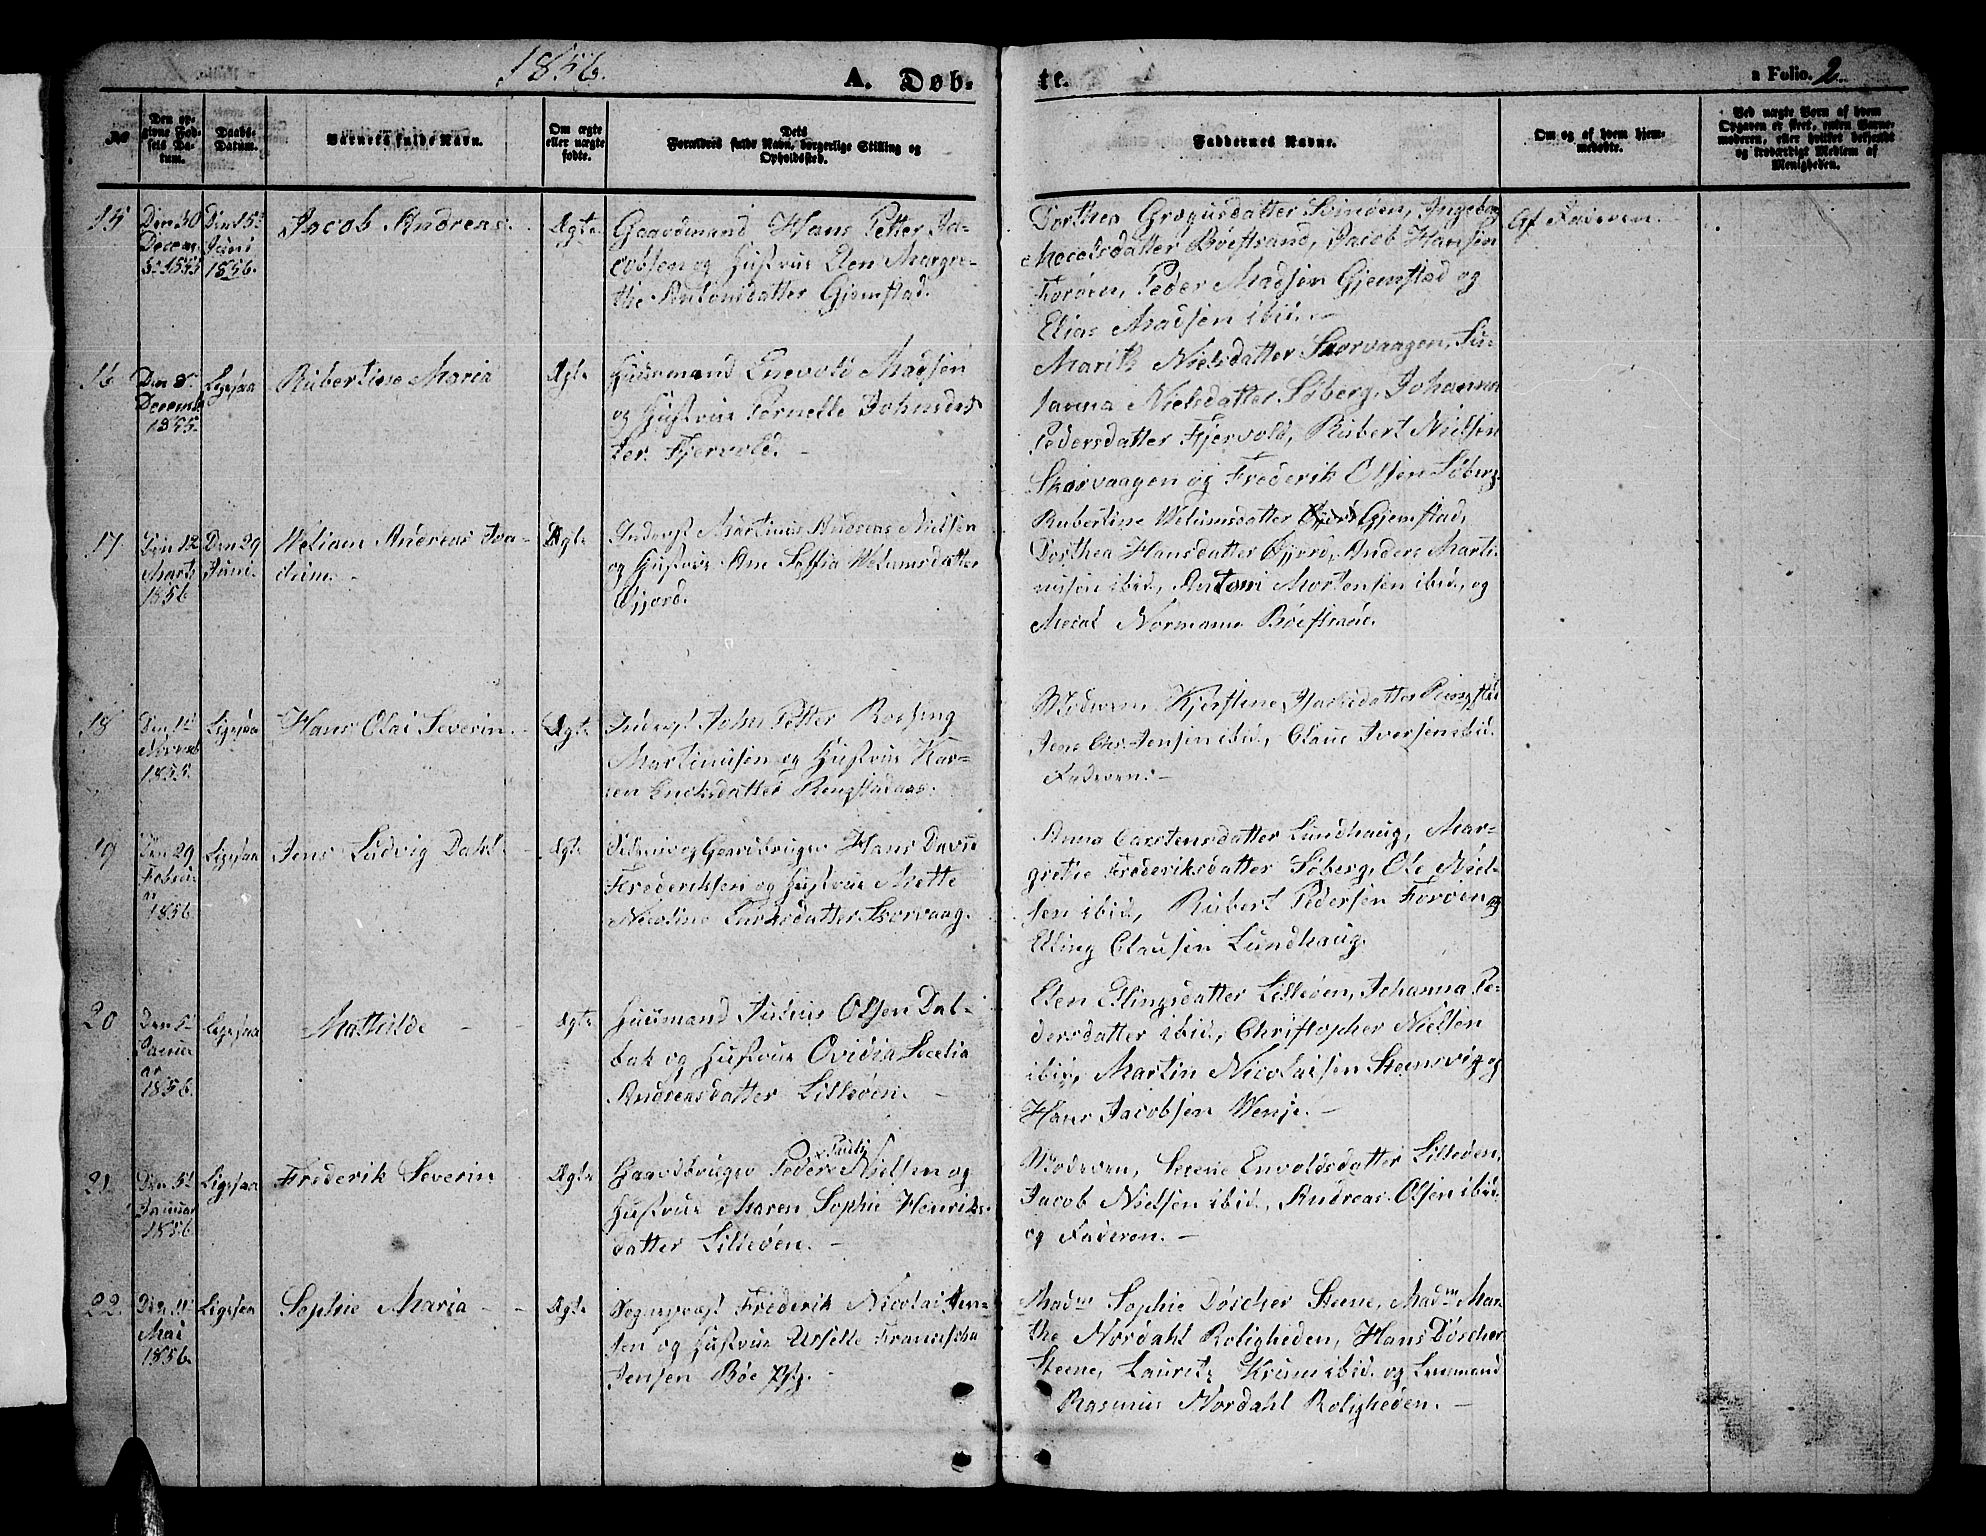 1856.
A. Døb-
te.
a Folio. 2
No
Den op-
givne Fød-
sels Da-
tum.
Daabs-
Datum.
Barnets fulde Navn.
Om ægte
eller uægte
fødte.
Dets
Forældres fulde Navn, borgerlige Stilling og
Opholdssted.
Faddernes Navne.
Om og af hvem hjem-
medøbte.
Ved uægte Børn af hvem
Opgaven er skeet, enten Barne-
moderen, eller hvilket bekjendt
og troværdigt Medlem af
Menigheden.
15
Den 30
Decem-
br 1855
Den 15de
Juni
1856.
Jacob Andreas.
Ægte
Gaardmand Hans Petter Ja-
cobsen og Hustrue Elen Margre-
the Antonsdatter Gjemstad.
Dorthea Gregusdatter Svinøen, Ingebog
Mecalsdatter Bøestrand, Jacob Hansen
Forøen, Peder Madsen Gjemstad og
Elias Madsen ibid.
Af Faderen.
16
Den 5
Decemb
1855.
Ligesaa
Rubertine Maria
Ægte
Huusmand Enevold Madsen
og Hustrue Pernelle Johnsdat
ter Fjervold.
Marith Nielsdatter Skorvaagen, Su-
sanna Nielsdatter Søberg, Johanna
Pedersdatter Fjervold, Rubert Nielsen
Skorvaagen og Frederik Olsen Søberg.
17
Den 12
Marts
1856
Den 29
Juni
Weliam Andreas Joa-
chim
Ægte
Inderst Martinus Andreas Nielsen
og Hustrue Ane Soffia Welumsdatter
Fjord.
Rubertine Welumsdatter Gjemstad,
Dorthea Hansdatter Fjord, Anders Marti-
nussen ibid, Antoni Mortensen ibid, og
Mecal Normann Bøestrand.
18
Den 1ste
Novemb
1855.
Ligesaa
Hans Olai Severin
Ægte
Inderst John Petter Roesing
Martinusen og Hustrue Kar-
en Enoksdatter Ringstadaas.
Moderen Kjerstine
Jens Chr. Jensen ibid, Claus Iversen ibid.
Faderen.
19
Den 29
Febru-
ar
1856
Ligesaa
Jens Ludvig Dahl
Ægte
Selveier og Gaardbruger Hans David
Frederiksen og Hustrue Mette
Nicoline Larsdatter Skorvaag.
Anna Carstensdatter Lundhaug, Mar-
grethe Frederiksdatter Søberg, Ole Niel-
sen ibid, Rubert Pedersen Forøen og
Elling Clausen Lundhaug.
20
Den 5te
Janu-
ar
1856.
Ligesaa
Mathilde
Ægte
Huusmand Julius Olsen Dal-
bak og Hustrue Ovidia Secelia
Andreasdatter Lilleøen.
Elen Ellingsdatter Lilleøen, Johanna Pe-
dersdatter ibid, Christopher Nielsen
ibid, Martin Nicolaisen Steensvig og
Hans Jacobsen Wenje.
21.
Den 5te
Januar
1856
Ligesaa
Frederik Severin
Ægte
Pauli
Gaardbruger Peder Nielsen og
Hustrue Maren Sophie Henriks-
datter Lilleøen.
Moderen, Serene Envoldsdatter Lilleøen,
Jacob Nielsen ibid, Andreas Olsen ibid.
og Faderen.
22.
Den 11te
Mai
1856.
Ligesaa
Sophie Maria
Ægte
Sogneprest Frederik Nicolai Jen-
sen og Hustrue Urselle Francischa
Jensen Bøe Pstg.
Madm Sophie Döscher Steene, Madm Mar-
the Nordahl Roligheden, Hans Döscher
Steene, Lauritz Krum ibid. og Lensmand
Rasmus Nordahl Roligheden.